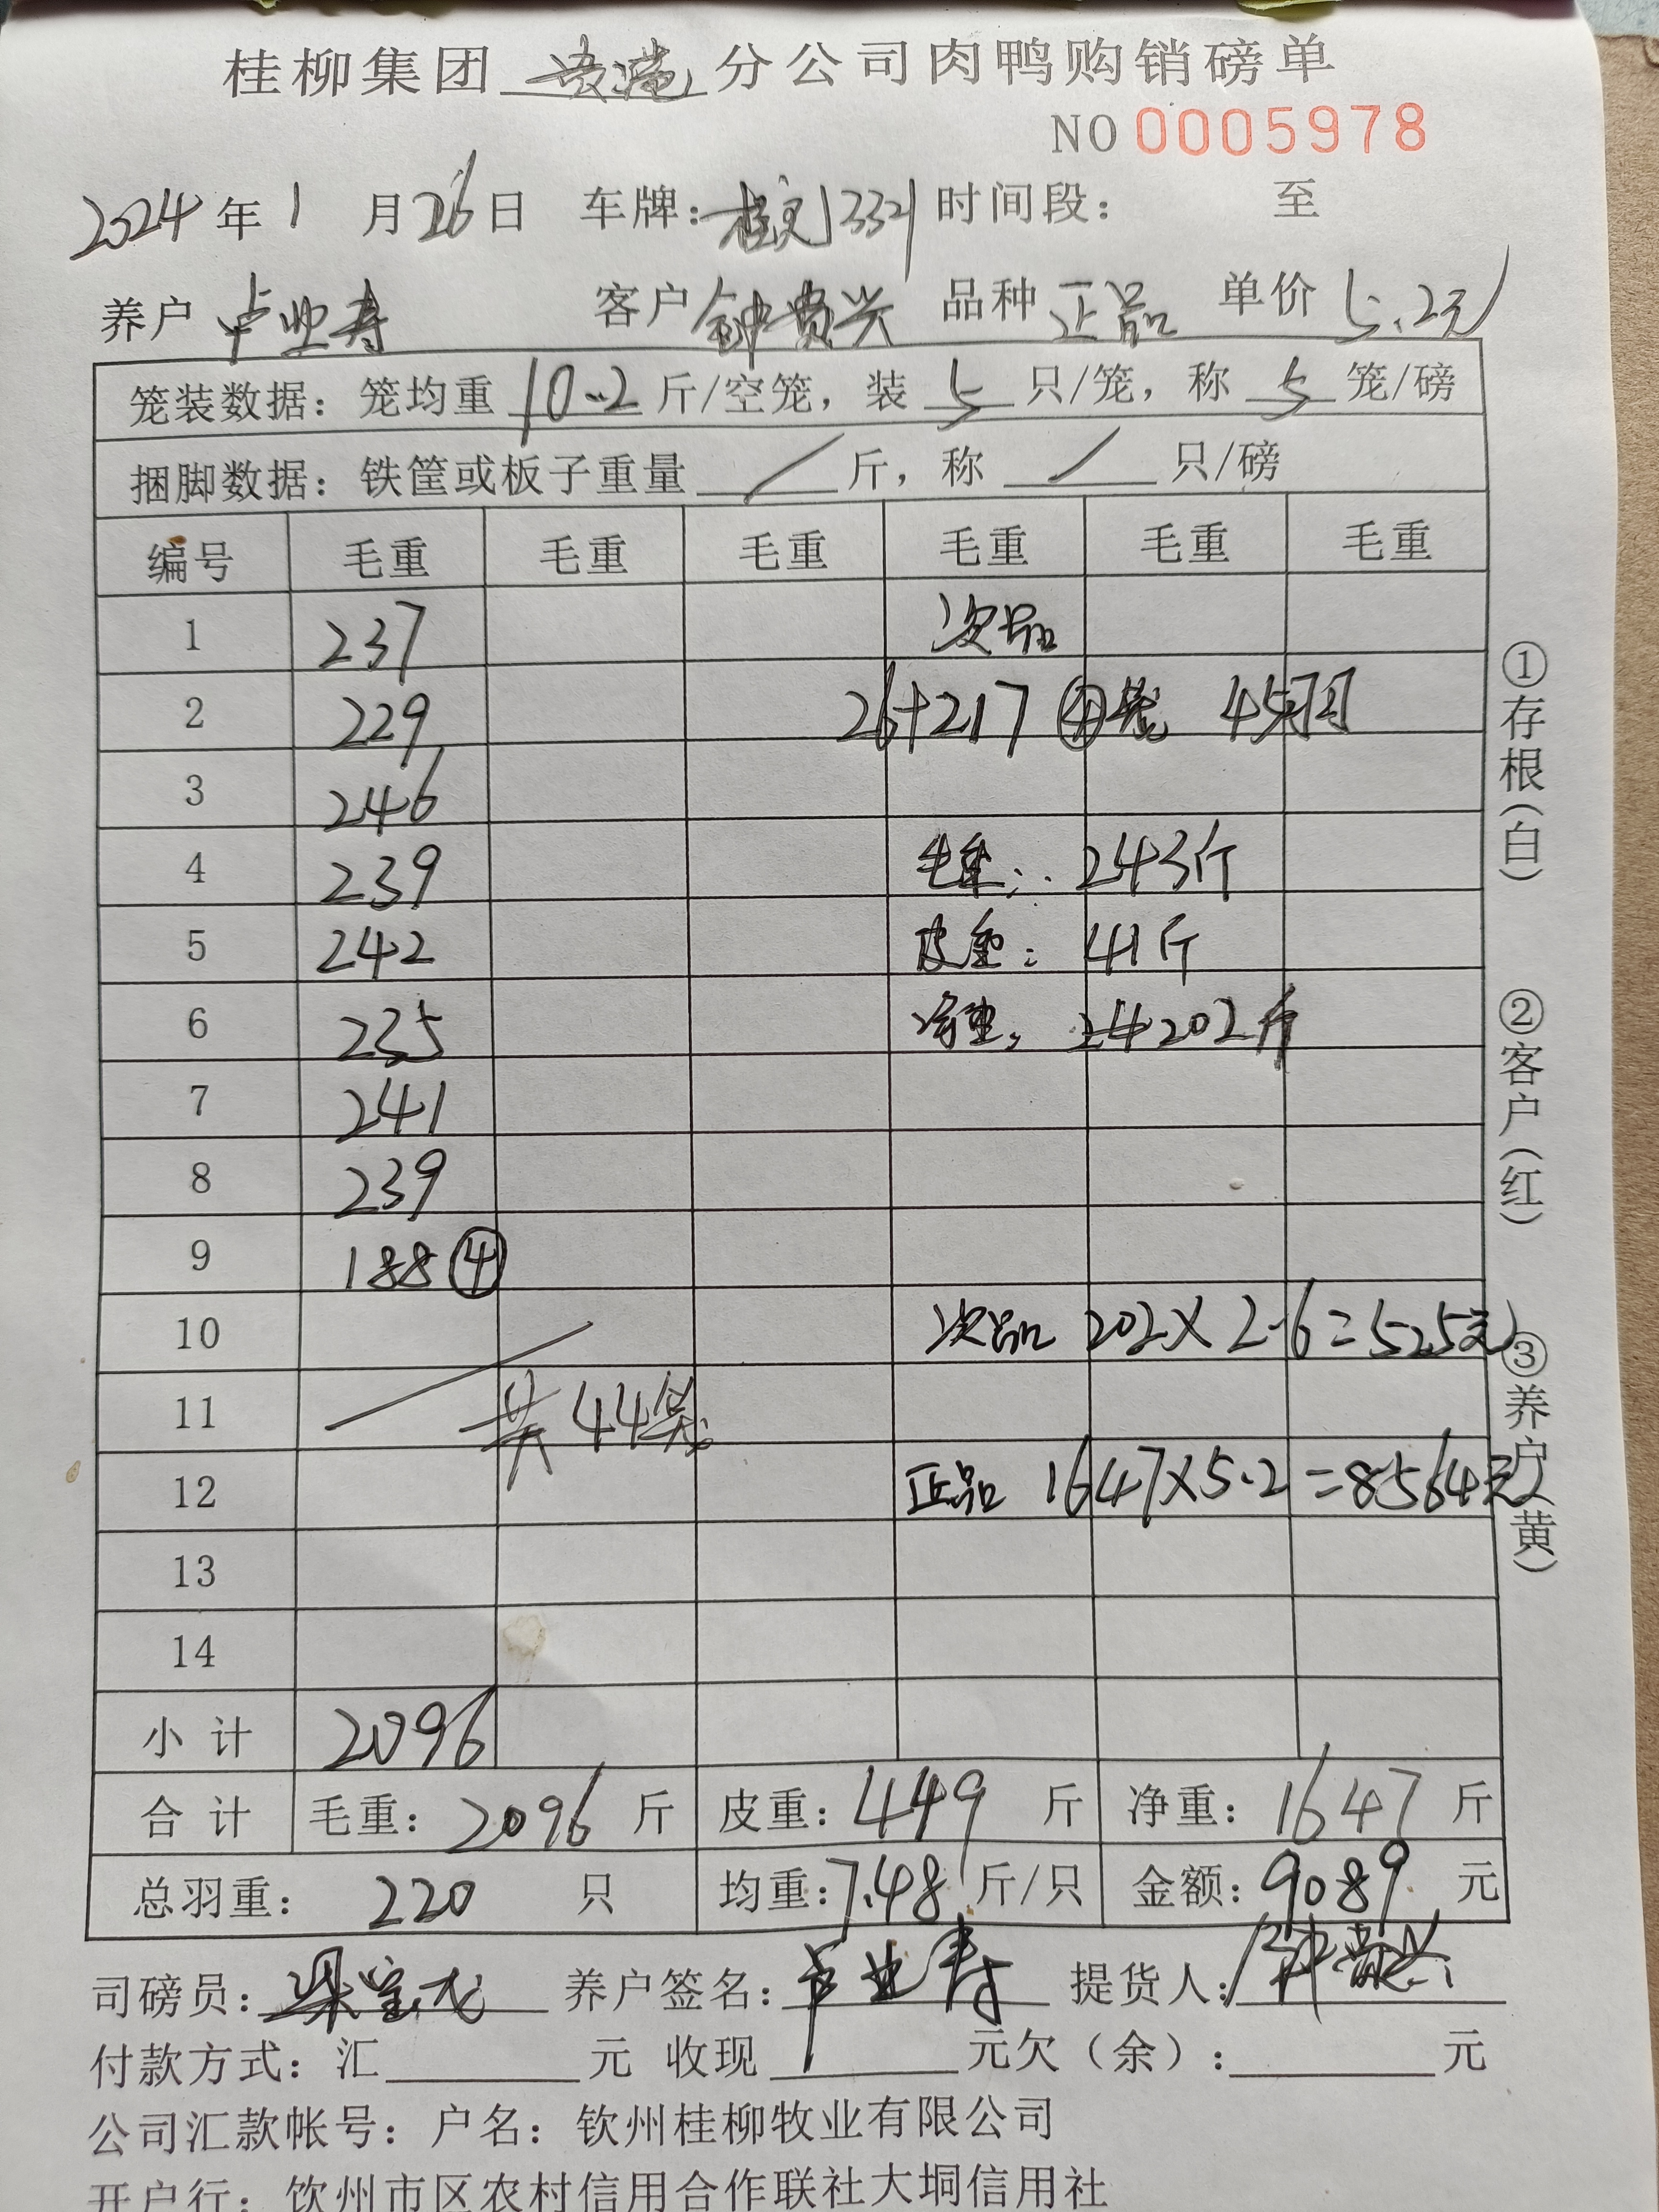 桂柳集团 贵港 分公司肉鸭购销磅单
NO 0005978
2024年 1 月 26 日 车牌: 时间段: 至
养户 卢业寿 客户 钟贵兴 品种 正品 单价 5.2元
笼装数据: 笼均重 10.2 斤/空笼, 装 5 只/笼, 称 5 笼/磅
捆脚数据: 铁筐或板子重量 / 斤, 称 / 只/磅
编号 毛重 毛重 毛重 毛重 毛重 毛重
1 237 次品
2 229 26+217 ④笼 45只
3 246
4 239 毛重: 243斤
5 242 皮重: 41斤
6 235 净重: 202斤
7 241
8 239
9 188④
10 次品 202×2.6=525元
11 共44笼
12 正品 1647×5.2=8564元
13
14
小计 2096
合计 毛重: 2096 斤 皮重: 449 斤 净重: 1647 斤
总羽重: 220 只 均重: 7.48 斤/只 金额: 9089 元
司磅员: 养户签名: 卢业寿 提货人: 钟贵兴
付款方式: 汇 元 收现 元欠(余): 元
公司汇款帐号: 户名: 钦州桂柳牧业有限公司
开户行: 饮州市区农村信用合作联社大垌信用社
①存根(白)
②客户(红)
③养户(黄)